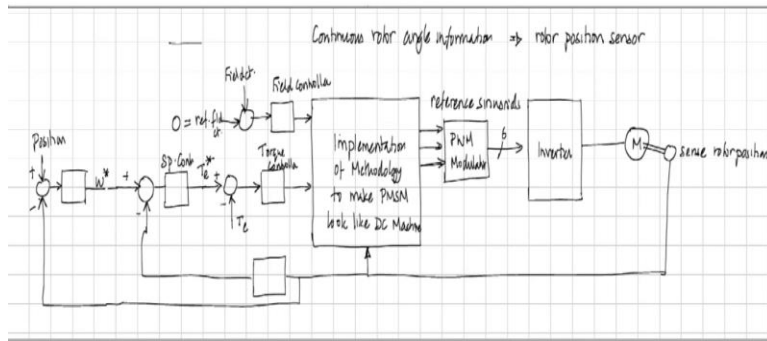 Continuous rotor angle information ⇒ rotor position sensor
Field ct.
Field Controlla
0 = ref. fld
ct.
reference sinusoids
Position
Sp. Cont
Torque
Controlla
Implementation
of Methodology
to make PMSM
look like DC Machine
PWM
Modulator
6
Inverter
M
sense rotor position
+
-
W*
+
-
Te*
+
-
Te